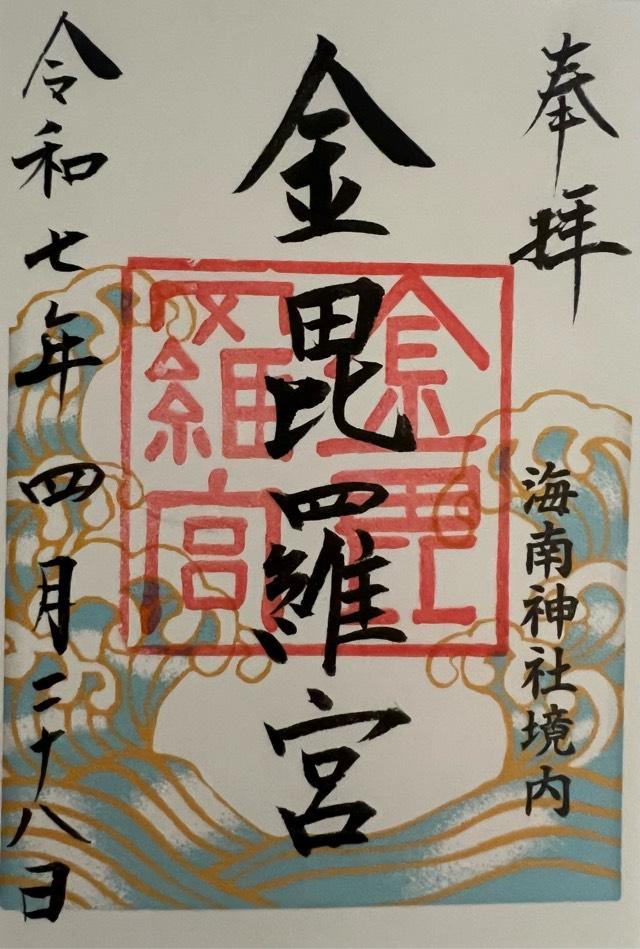 奉拝
海南神社境内
金毘羅宮
金毘羅宮
令和七年四月二十八日